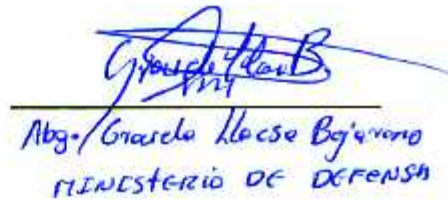 Abg. Graciela Llocsa Bejarano
MINISTERIO DE DEFENSA